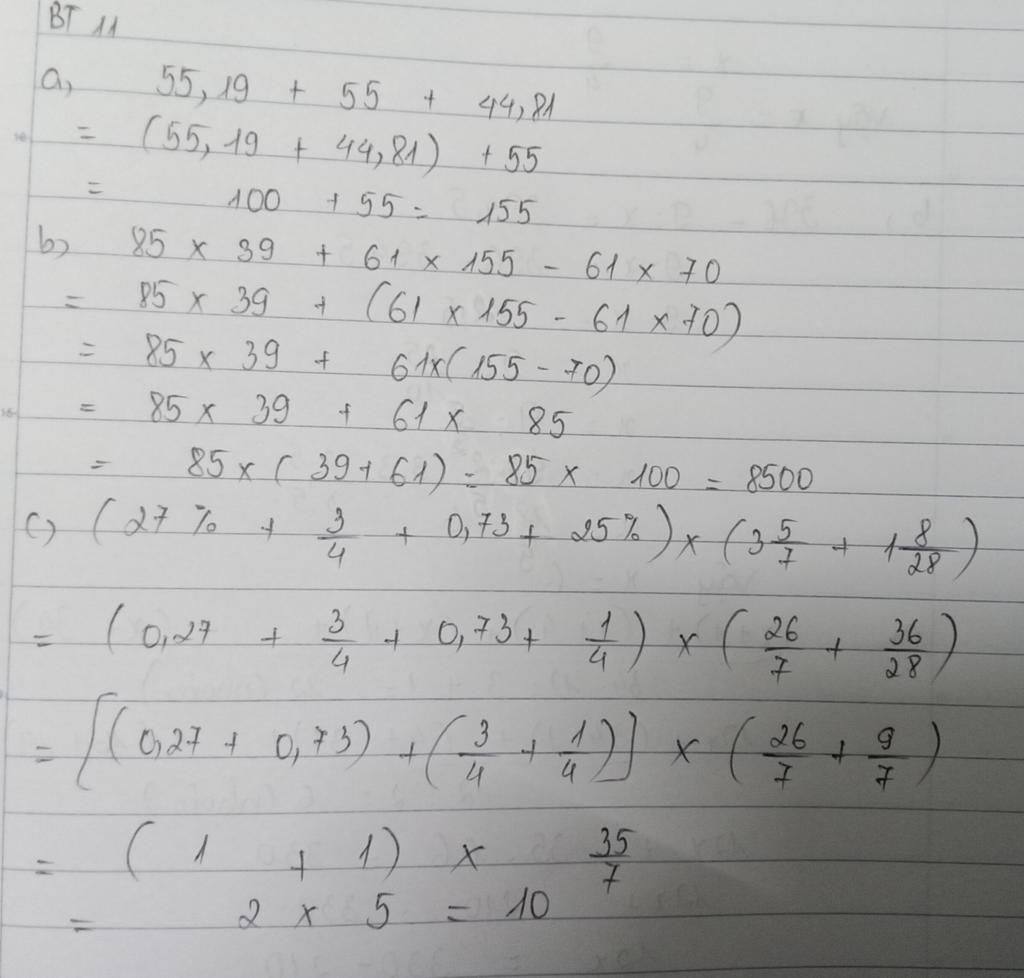 BT 11
a, 55,19 + 55 + 44,81
= (55,19 + 44,81) + 55
= 100 + 55 = 155
b) 85 x 39 + 61 x 155 - 61 x 70
= 85 x 39 + (61 x 155 - 61 x 70)
= 85 x 39 + 61x(155 - 70)
= 85 x 39 + 61 x 85
= 85 x (39+61) = 85 x 100 = 8500
c) (27 % + 3/4 + 0,73 + 25%) x (3 5/7 + 1 8/28)
= (0,27 + 3/4 + 0,73 + 1/4) x (26/7 + 36/28)
= [(0,27 + 0,73) + (3/4 + 1/4)] x (26/7 + 9/7)
= (1 + 1) x 35/7
= 2 x 5 = 10